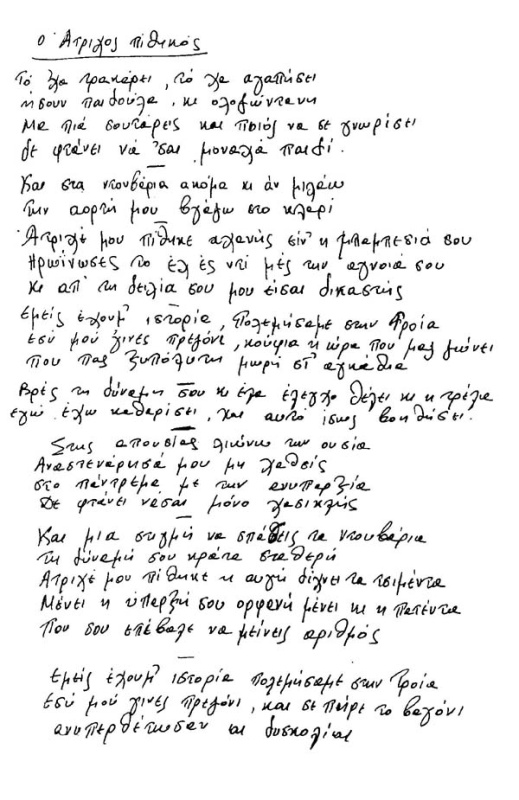 Ο Άτριχος πίθηκος
Τό χα τρακάρει, τό χα αγαπήσει
ήσουν παιδούλα, κι ολοζώντανη
Μα πιά σουτάρεις και ποιός να σε γνωρίσει
δε φτάνει νά 'σαι μοναχά παιδί.
Και στα ντουβάρια ακόμα κι άν μιλάω
την αορτή μου βγάζω στο κλαρί
Άτριχέ μου πίθηκε αλανης είν' η μπαμπεσιά σου
Ηρωίνωσες το έλ ές ντί μές την άγνοιά σου
κι απ' τη δειλία σου μου είσαι δικαστής
Εμείς έχουμ' ιστορία, Πολεμήσαμε στην Τροία
εσύ μού γινες πρεζόνι, κούφια η ώρα που μας ζώνει
που πας ξυπόλυτη μωρή στ' αγκάθια
Βρές τη δύναμή σου κι έλα έλεγχο θέλει κι η τρέλα
εγώ έχω καθαρίσει, και αυτό ίσως βοηθήσει.
Στης απουσίας λιώνω την ουσία
Αναστενάρισά μου μη χαθείς
στο πάντρεμα με την ανυπαρξία
Δε φτάνει νάσαι μόνο χασικλής
Και μια στιγμή να σπάσεις τα ντουβάρια
τη δύναμή σου κράτα σταθερή
Άτριχέ μου πίθηκε η αυγή δίχνει τα τσιμέντα
Μένει η ύπαρξή σου ορφανή μένει κι η πατέντα
Που σου επέβαλε να μείνεις αριθμός
Εμείς έχουμ' ιστορία πολεμήσαμε στην Τροία
εσύ μού γινες πρεζόνι, και σε πήρε το βαγόνι
ανυπερθέτωσαν οι δυσκολίαι